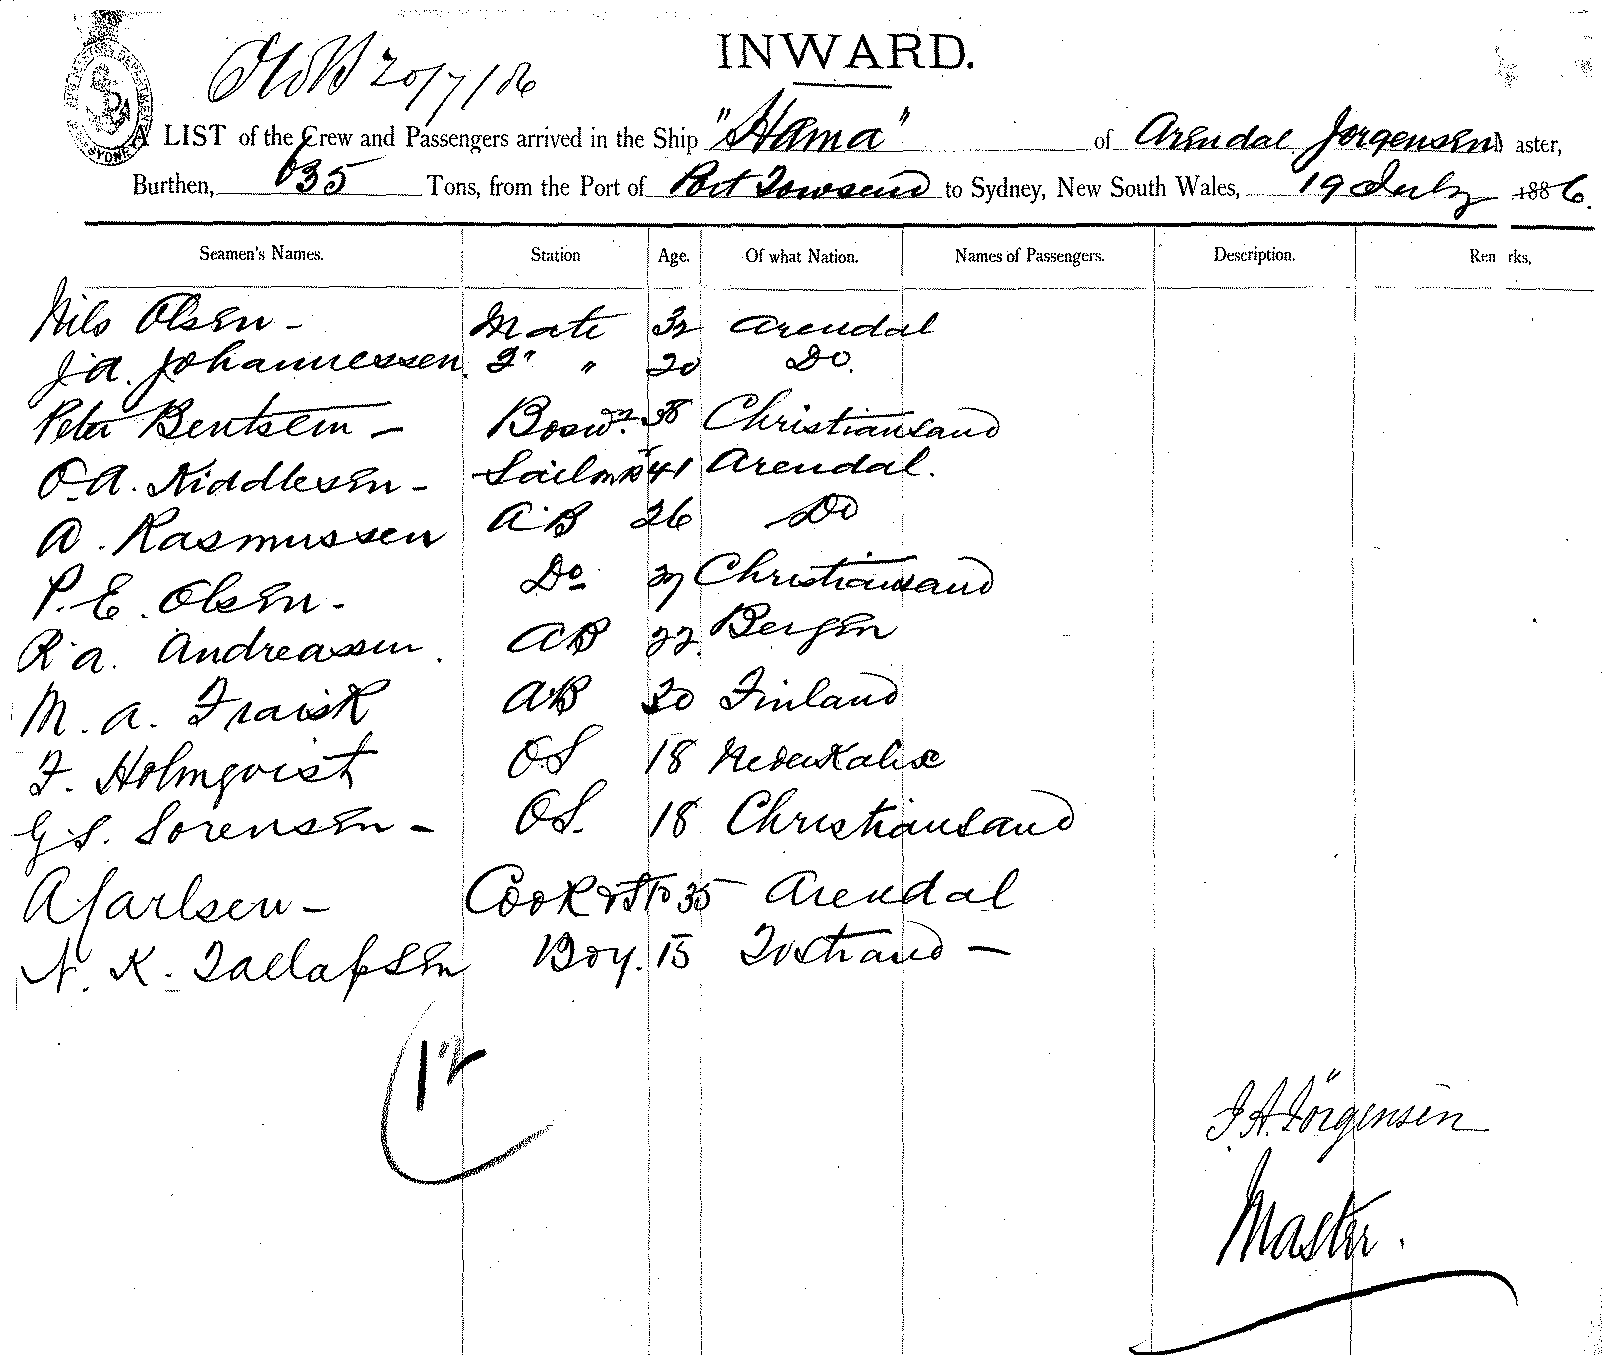 INWARD.
20/7/86
A LIST of the Crew and Passengers arrived in the Ship "Hama" of Arendal Jorgensen aster,
Burthen, 635 Tons, from the Port of Port Townsend to Sydney, New South Wales, 19 July 1886.
Seamen's Names. Station Age. Of what Nation. Names of Passengers. Description. Rem rks,
Nils Olsen - Mate 32 Arendal
J.A. Johannessen. 2" " 20 Do.
Peter Bentsen - Boswn. 38 Christiansand
O.A. Niddlesen - 41 Arendal.
A. Rasmussen AB 26 Do
P. E. Olsen - Do 27 Christiansand
R. A. Andreassen. AB 22 Bergen
M. A. Fraisk AB 20 Finland
F. Holmqvist OS 18 Nederkalix
G. S. Sorensen - OS. 18 Christiansand
A Carlsen - Cook & St 35 Arendal
N. K. Tallafsen Boy. 15 Tostrand -
12
J. A. Jörgensen
Master.